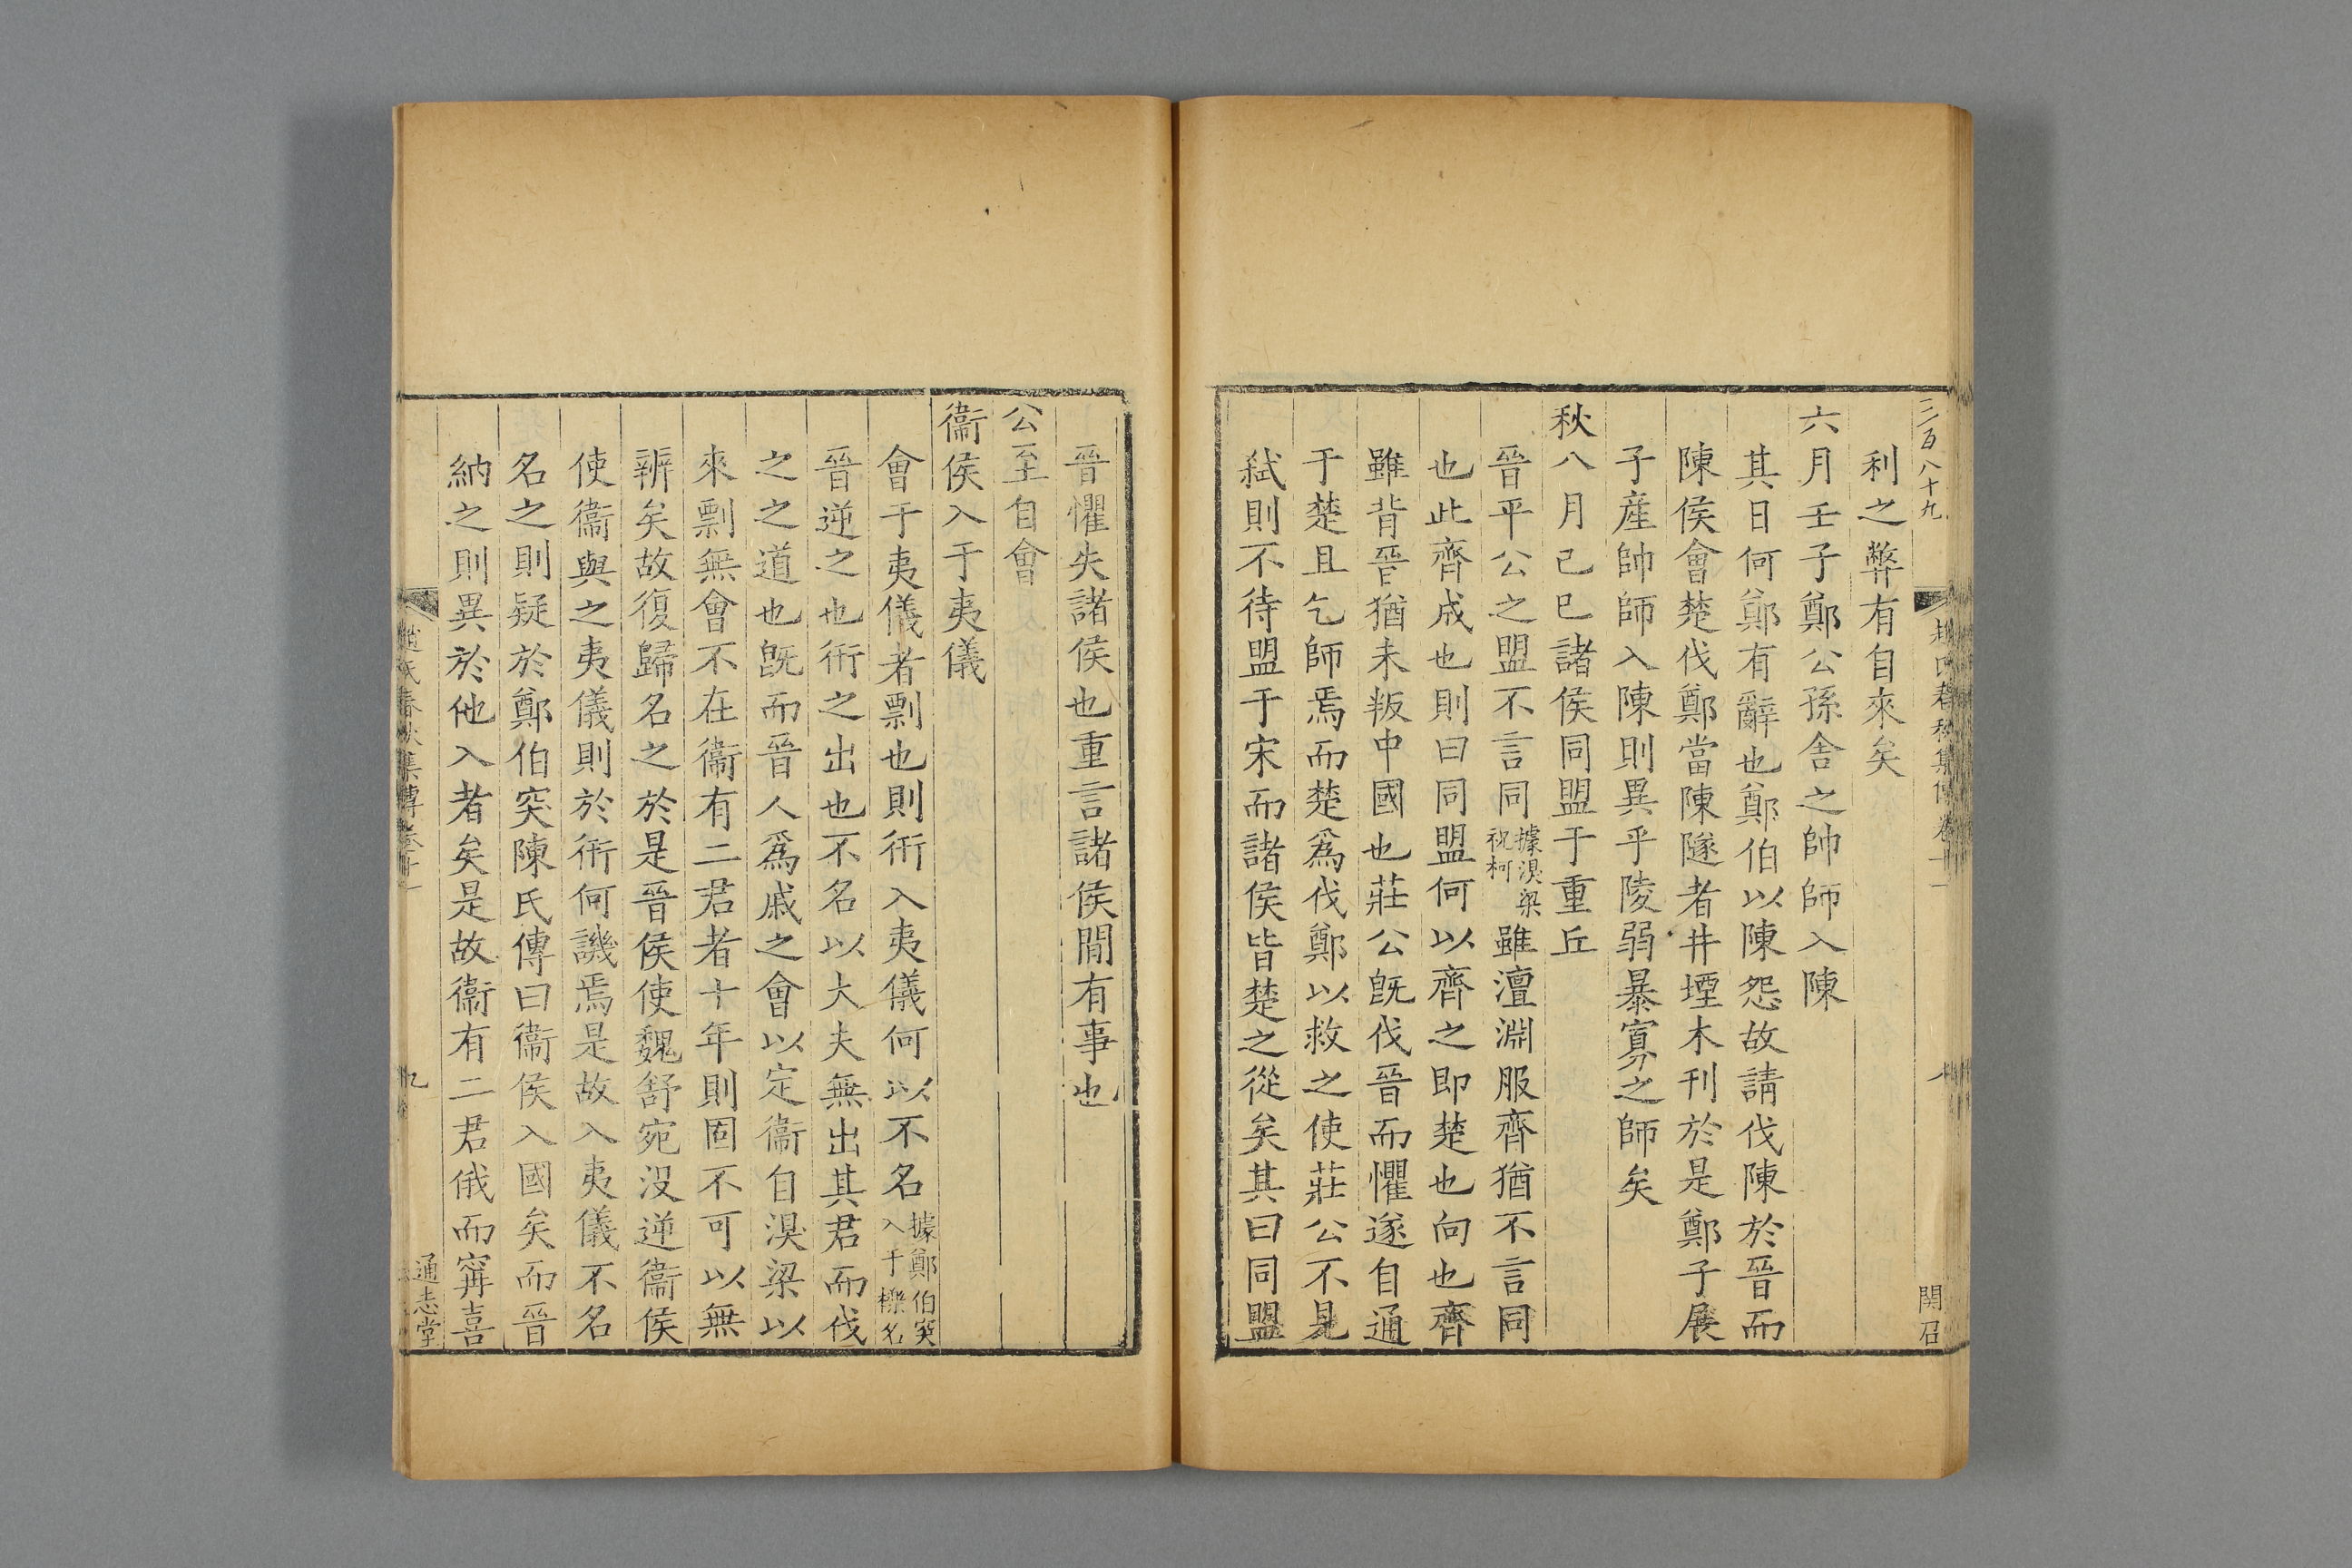 三百八十九
趙氏春秋集傳卷十一
八
関召
利之弊有自來矣
六月壬子鄭公孫舍之帥師入陳
其日何鄭有辭也鄭伯以陳怨故請伐陳於晉而
陳侯會楚伐鄭當陳隧者井堙木刊於是鄭子展
子產帥師入陳則異乎陵弱暴寡之師矣
秋八月己巳諸侯同盟于重丘
晉平公之盟不言同據湨梁祝柯雖澶淵服齊猶不言同
也此齊成也則曰同盟何以齊之即楚也向也齊
雖背晉猶未叛中國也莊公旣伐晉而懼遂自通
于楚且乞師焉而楚爲伐鄭以救之使莊公不見
弒則不待盟于宋而諸侯皆楚之從矣其曰同盟
晉懼失諸侯也重言諸侯閒有事也
公至自會
衞侯入于夷儀
會于夷儀者剽也則衎入夷儀何以不名據鄭伯突入于櫟名
晉逆之也衎之出也不名以大夫無出其君而伐
之之道也旣而晉人爲戚之會以定衞自湨梁以
來剽無會不在衞有二君者十年則固不可以無
辨矣故復歸名之於是晉侯使魏舒宛没逆衞侯
使衞與之夷儀則於衎何譏焉是故入夷儀不名
名之則疑於鄭伯突陳氏傳曰衞侯入國矣而晉
納之則異於他入者矣是故衞有二君俄而甯喜
趙氏春秋集傳卷十一
九
通志堂